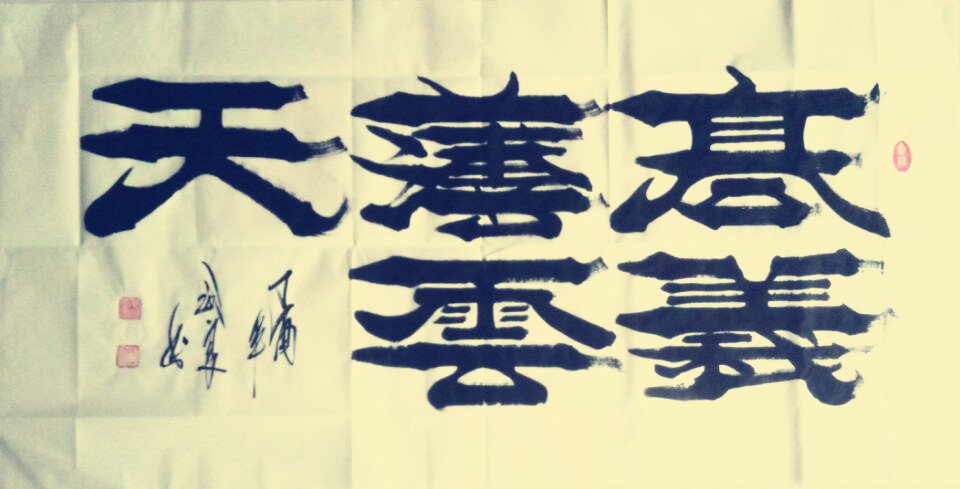 高義
薄雲
天